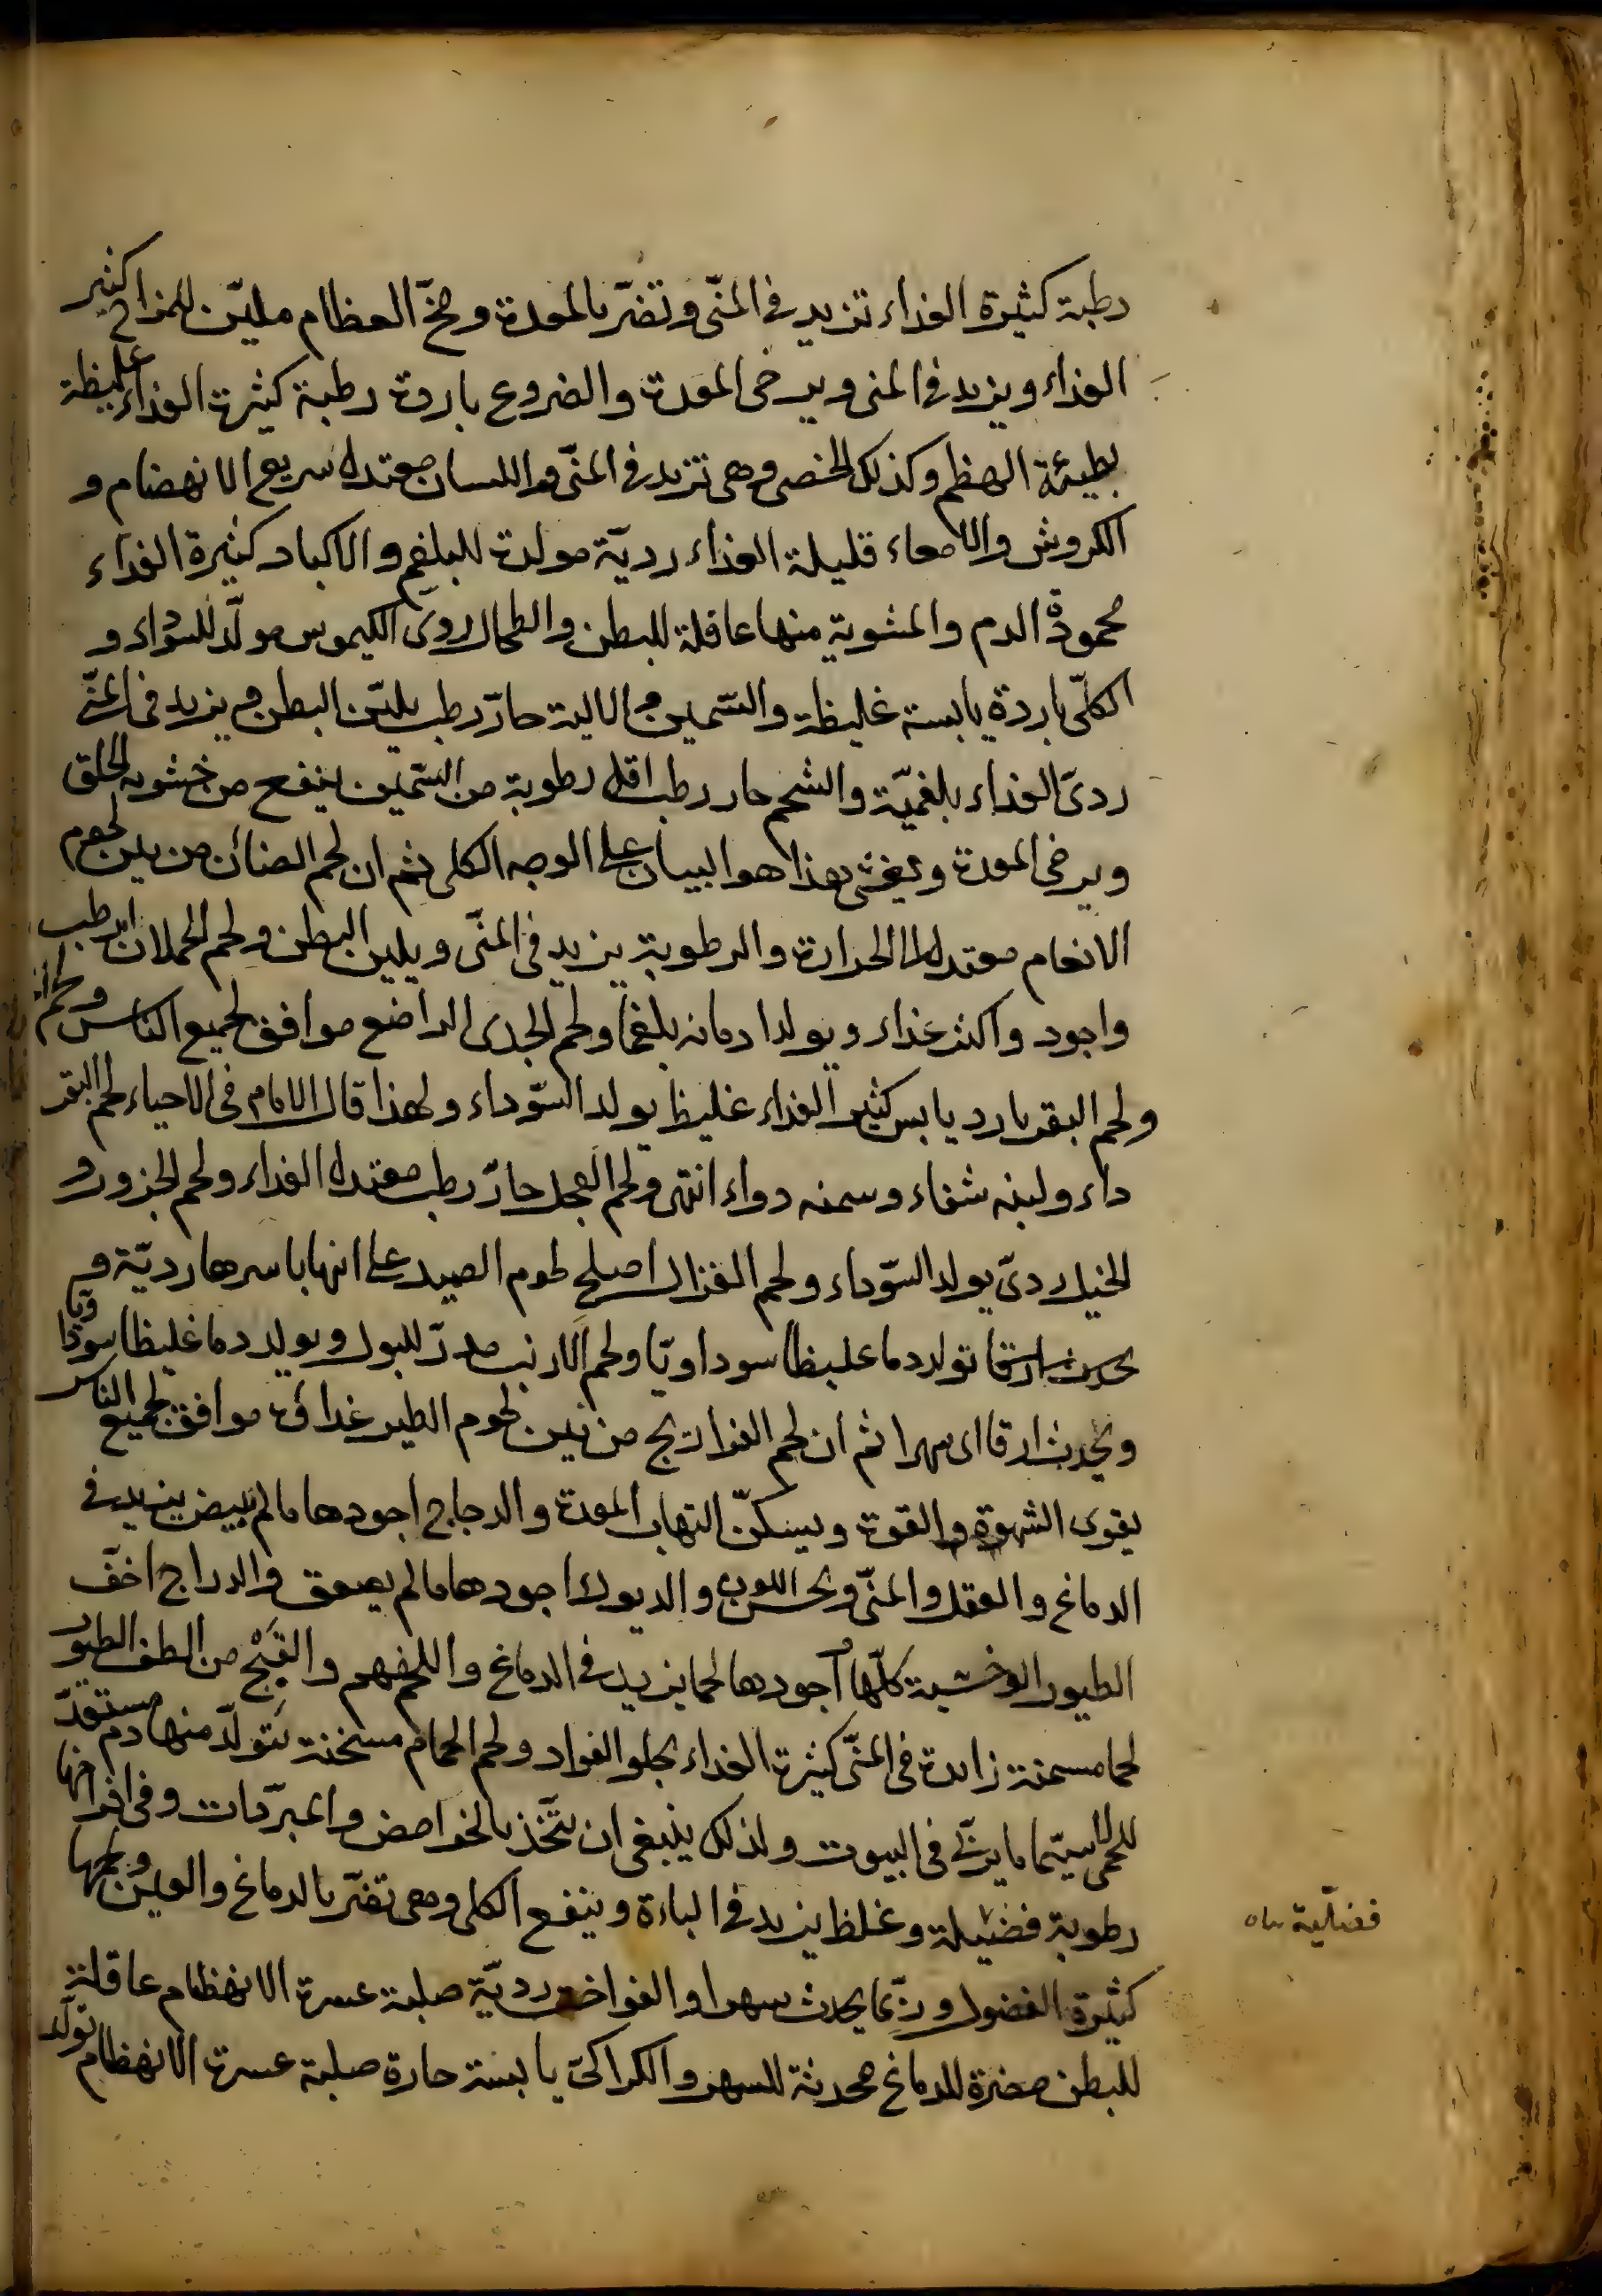 رطبة كثيرة الغذاء تزيد فى المنّى وتضرّ بالمعدة ومخّ العظام مليّن للمزاج كثير
الغذاء ويزيد فى المنى ويرخى المعدة والضروع باردة رطبة كثيرة الغذاء غليظة
بطيئة الهظم وكذلك الخصى وهى تزيد فى المنّى واللسان معتدل سريع الانهضام و
الكروش والامعاء قليلة الغذاء رديّة مولدة للبلغم والاكباد كثيرة الغذاء
محمودة الدم والمشوية منها عاقلة للبطن والطحال ردى الكيموس مولّد للسوداء و
الكلّى باردة يابسة غليظة والسّمين والالية حارّ رطب يليّن البطن ويزيد فى المنّى
ردىّ الغذاء بلغميّة والشحم حار رطب اقل رطوبة من السّمين ينفع من خشونة الحلق
ويرخى المعدة ويغثى هذا هو البيان على الوجه الكلى ثم ان لحم الضائن من بين لحوم
الانعام معتدل الحرارة والرطوبة يزيد فى المنّى ويلين البطن ولحم الحملان ارطب
واجود واكثر غذاء ويولد ادمانه بلغما ولحم الجدى الراضع موافق لجميع الناس
ولحم البقر بارد يابس كثير الغذاء غليظ يولد السّوداء ولهذا قال الامام فى الاحياء لحم البقر
داء ولبنه شفاء وسمنه دواء انتهى ولحم العجل حارّ رطب معتدل الغذاء ولحم الجزور و
الخيل ردىّ يولد السّوداء ولحم الغزال اصلح لحوم الصيد على انها باسرها رديّة و
يحدث ارقا تولد دما غليظا سوداويّا ولحم الارنب مدرّ للبول ويولد دما غليظا سوداويا
ويحدث ارقا اى سهرا ثم ان لحم الفراريج من بين لحوم الطير غذاؤه موافق لجميع الناس
يقوى الشهوة والقوة ويسكنّ التهاب المعدة والدجاج اجودها ما لم تبيض يزيد فى
الدماغ والعقل والمنّى ويحسن اللون والديوك اجودها ما لم يصعق والدراج اخفّ
الطيور الوحشية كلّها اجودها لحما يزيد فى الدماغ والفهم والقَبْج من الطف الطيور
لحما مسمنة زائدة فى المنّى كثيرة الغذاء يجلو الفواد ولحم الحمام مسخنة يتولّد منها دم مستعدّ
للحمى لا سيّما ما يربّى فى البيوت ولذلك ينبغى ان يتّخذ بالحوامض والمبرّدات وفى افراخها
رطوبة فضيلة وغلظ يزيد فى الباءة وينفع الكلى وهى تضرّ بالدماغ والعين ولحمها
كثيرة الفضول وربّما يحدث سهرا والفواخت رديّة صلبة عسرة الانهظام عاقلة
للبطن مضرة للدماغ محدثة للسهر والكراكىّ يابسة حارة صلبة عسرة الانهظام تولّد
فضليّة